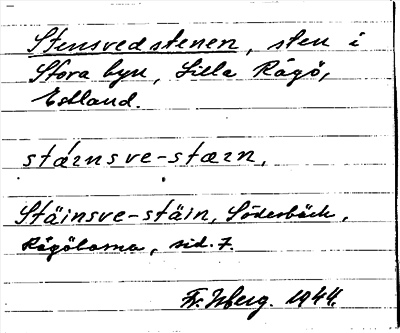 Stensvedstenen, sten i
Stora byn, Lilla Rågö,
Estland.
stáinsve-stæin,
Stäinsve-stäin, Söderbäck,
Rågöarna, sid. 7.
Fr. Isberg. 1944.